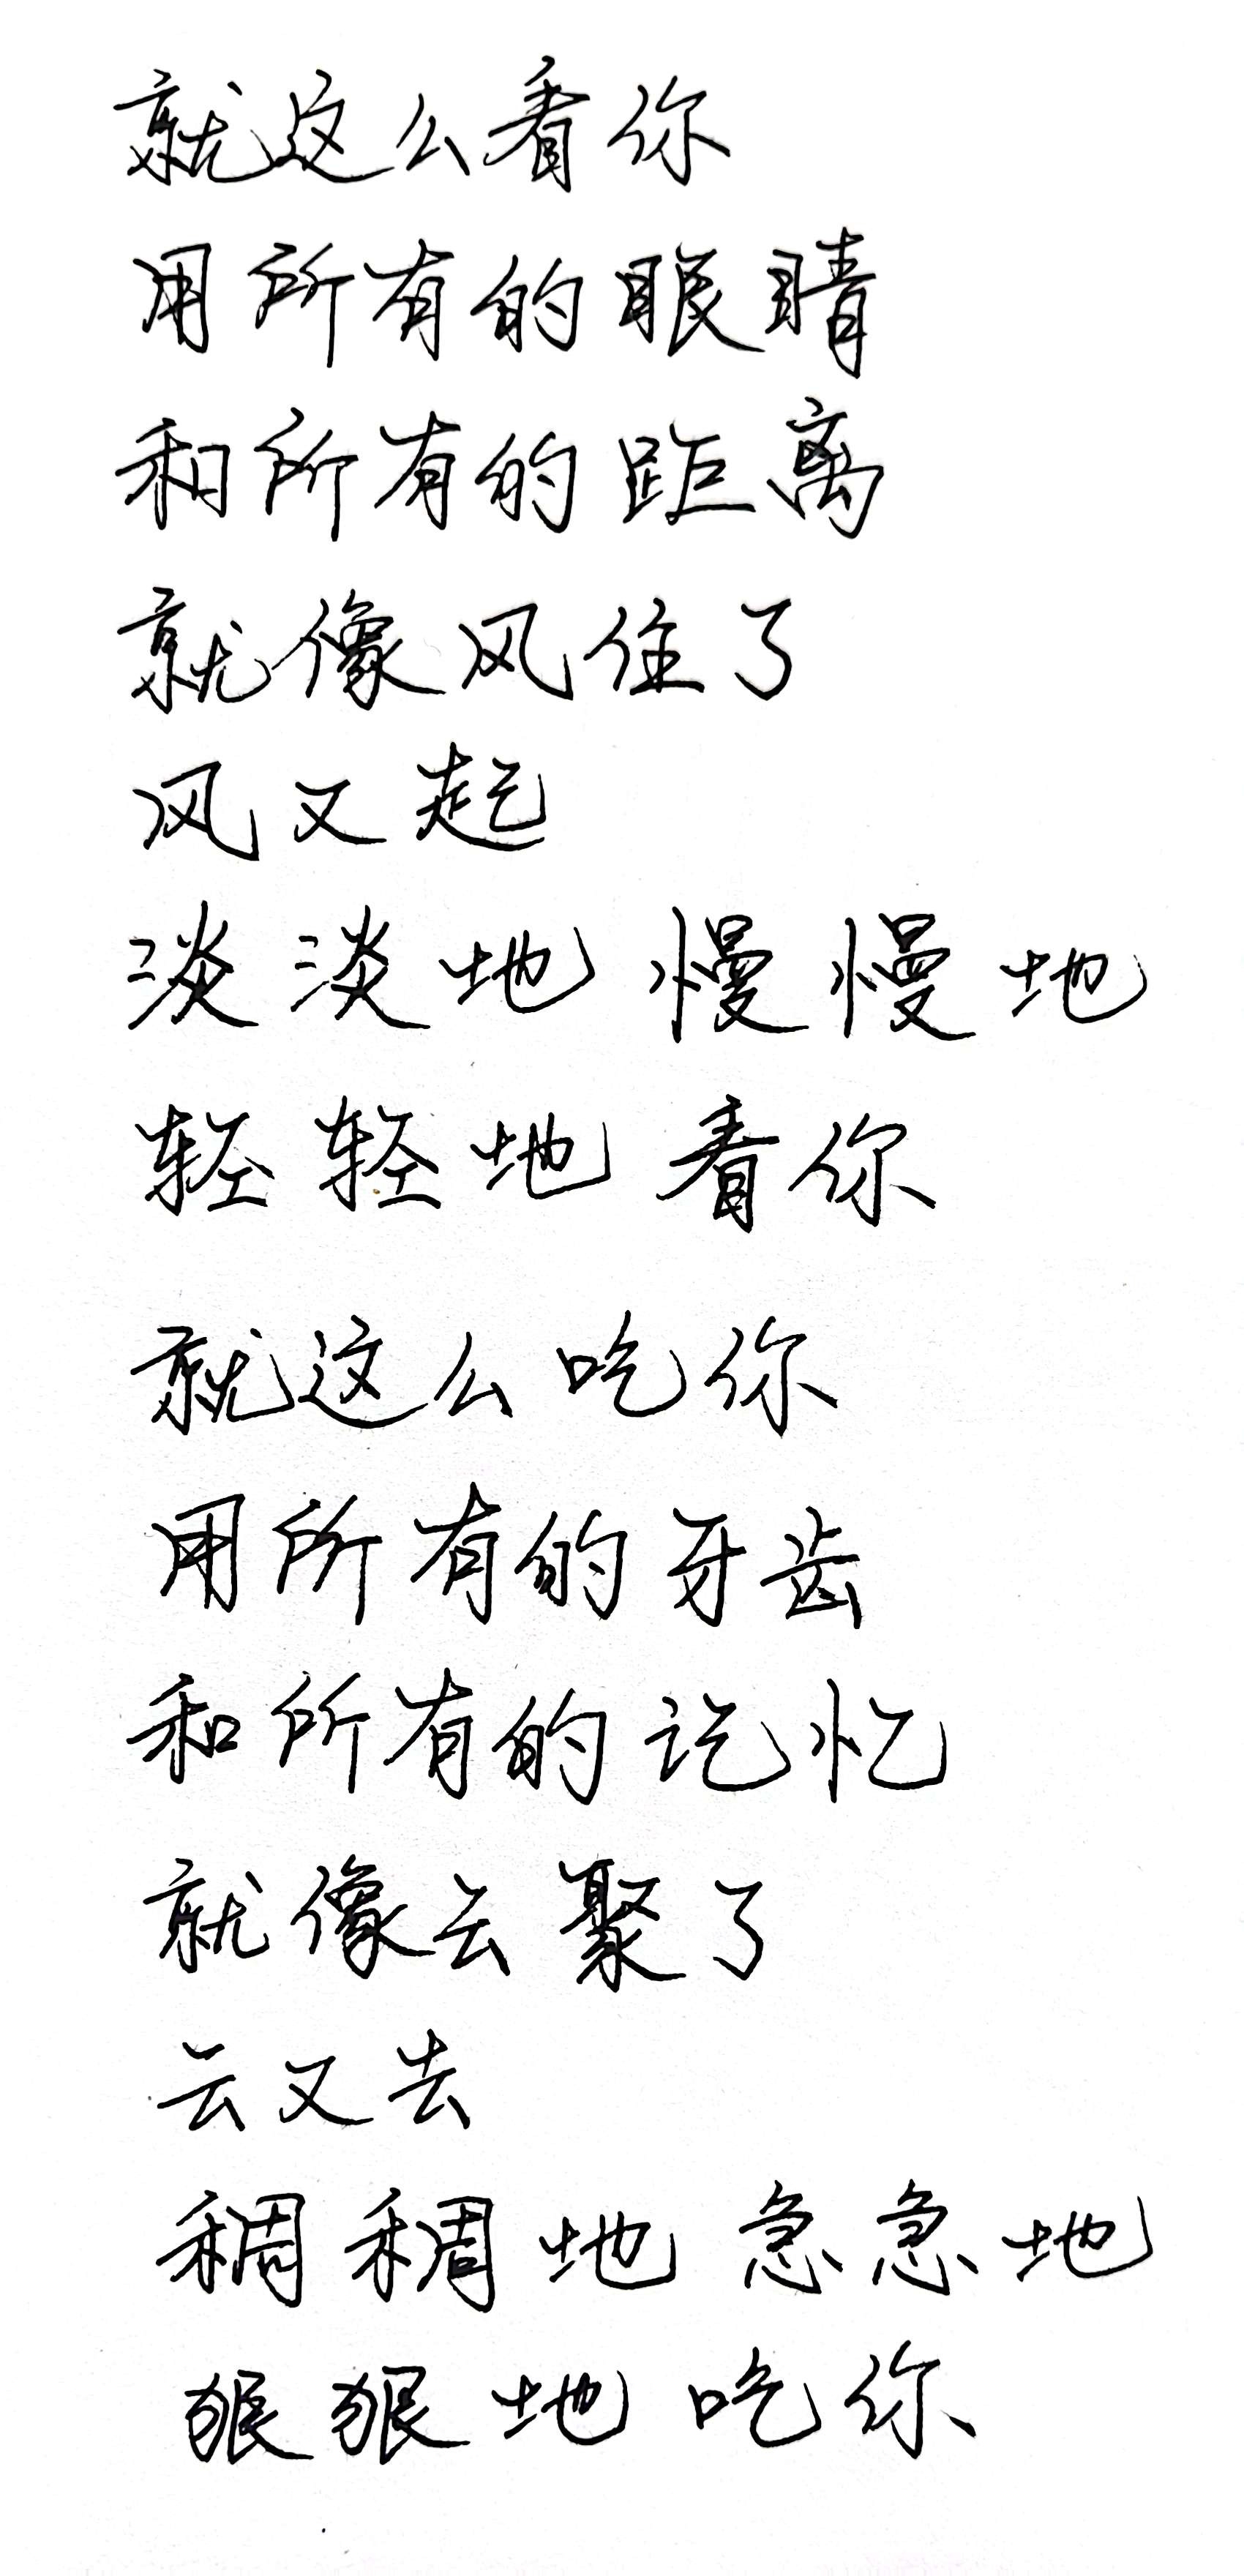 就这么看你
用所有的眼睛
和所有的距离
就像风住了
风又起
淡淡地 慢慢地
轻轻地 看你
就这么吃你
用所有的牙齿
和所有的记忆
就像云聚了
云又去
稠稠地 急急地
狠狠地 吃你